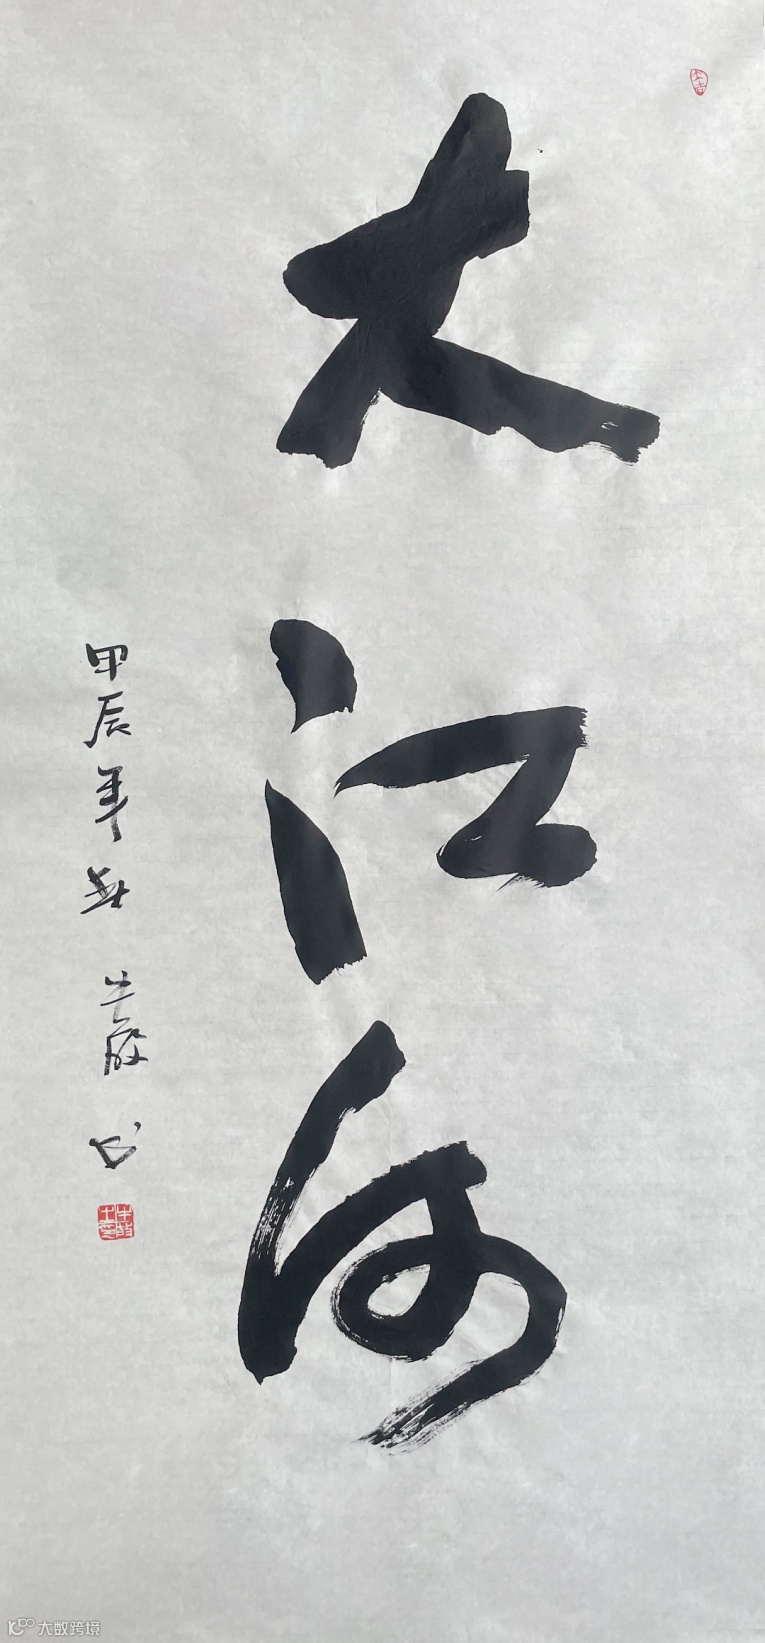 大江河
甲辰年春 牛放书
大数跨境